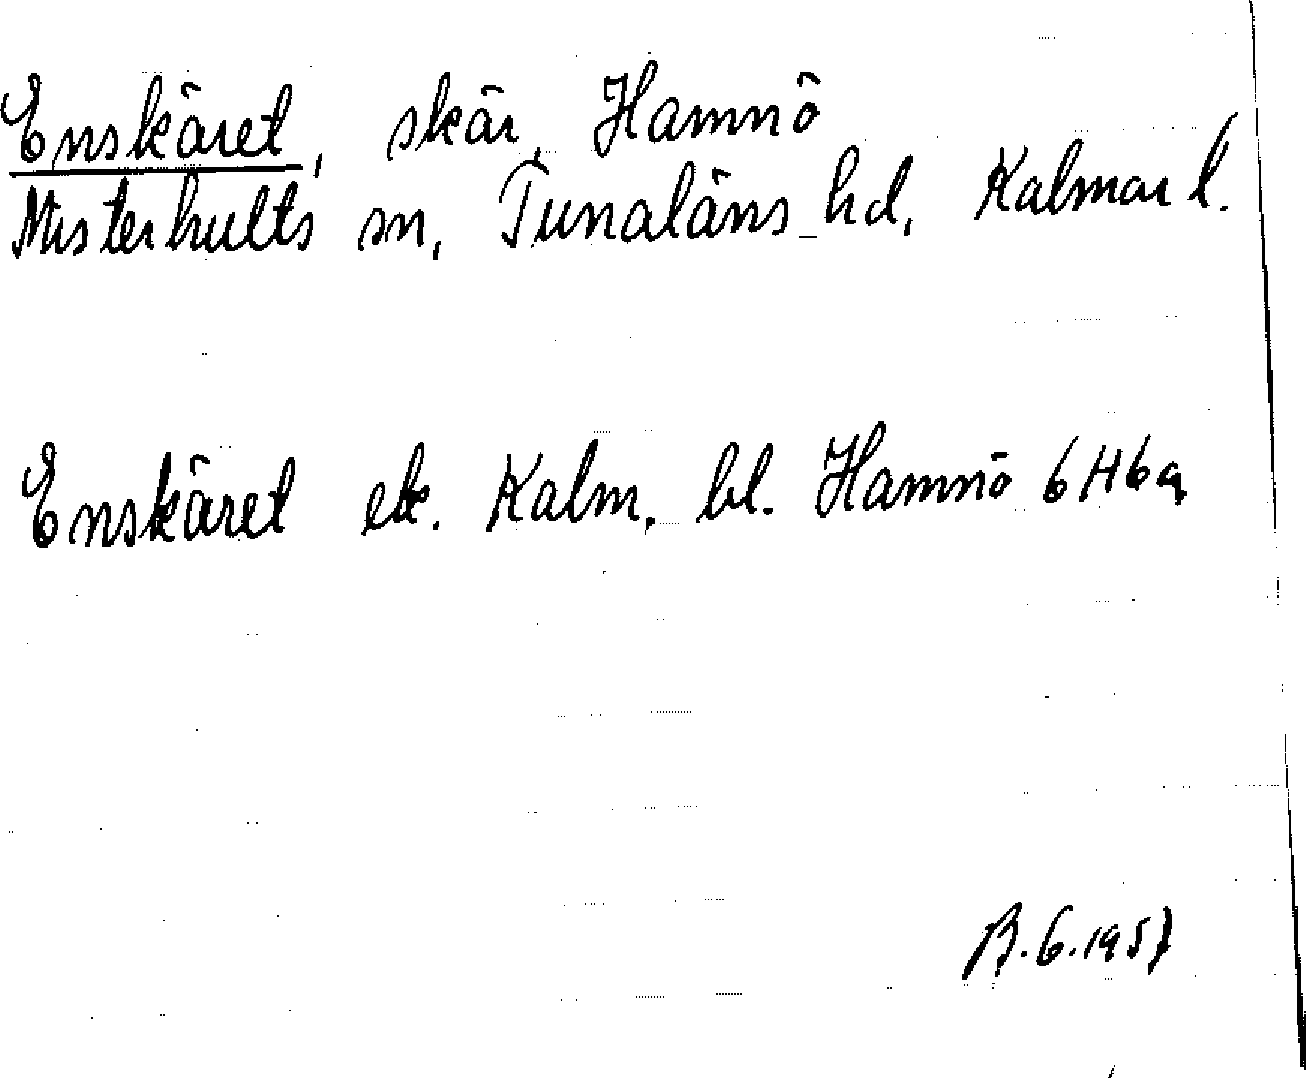 Enskäret, skär, Hamnö
Misterhults sn, Tunaläns hd, Kalmar l.
Enskäret ek. Kalm. bl. Hamnö 6H6a
B.G.1957